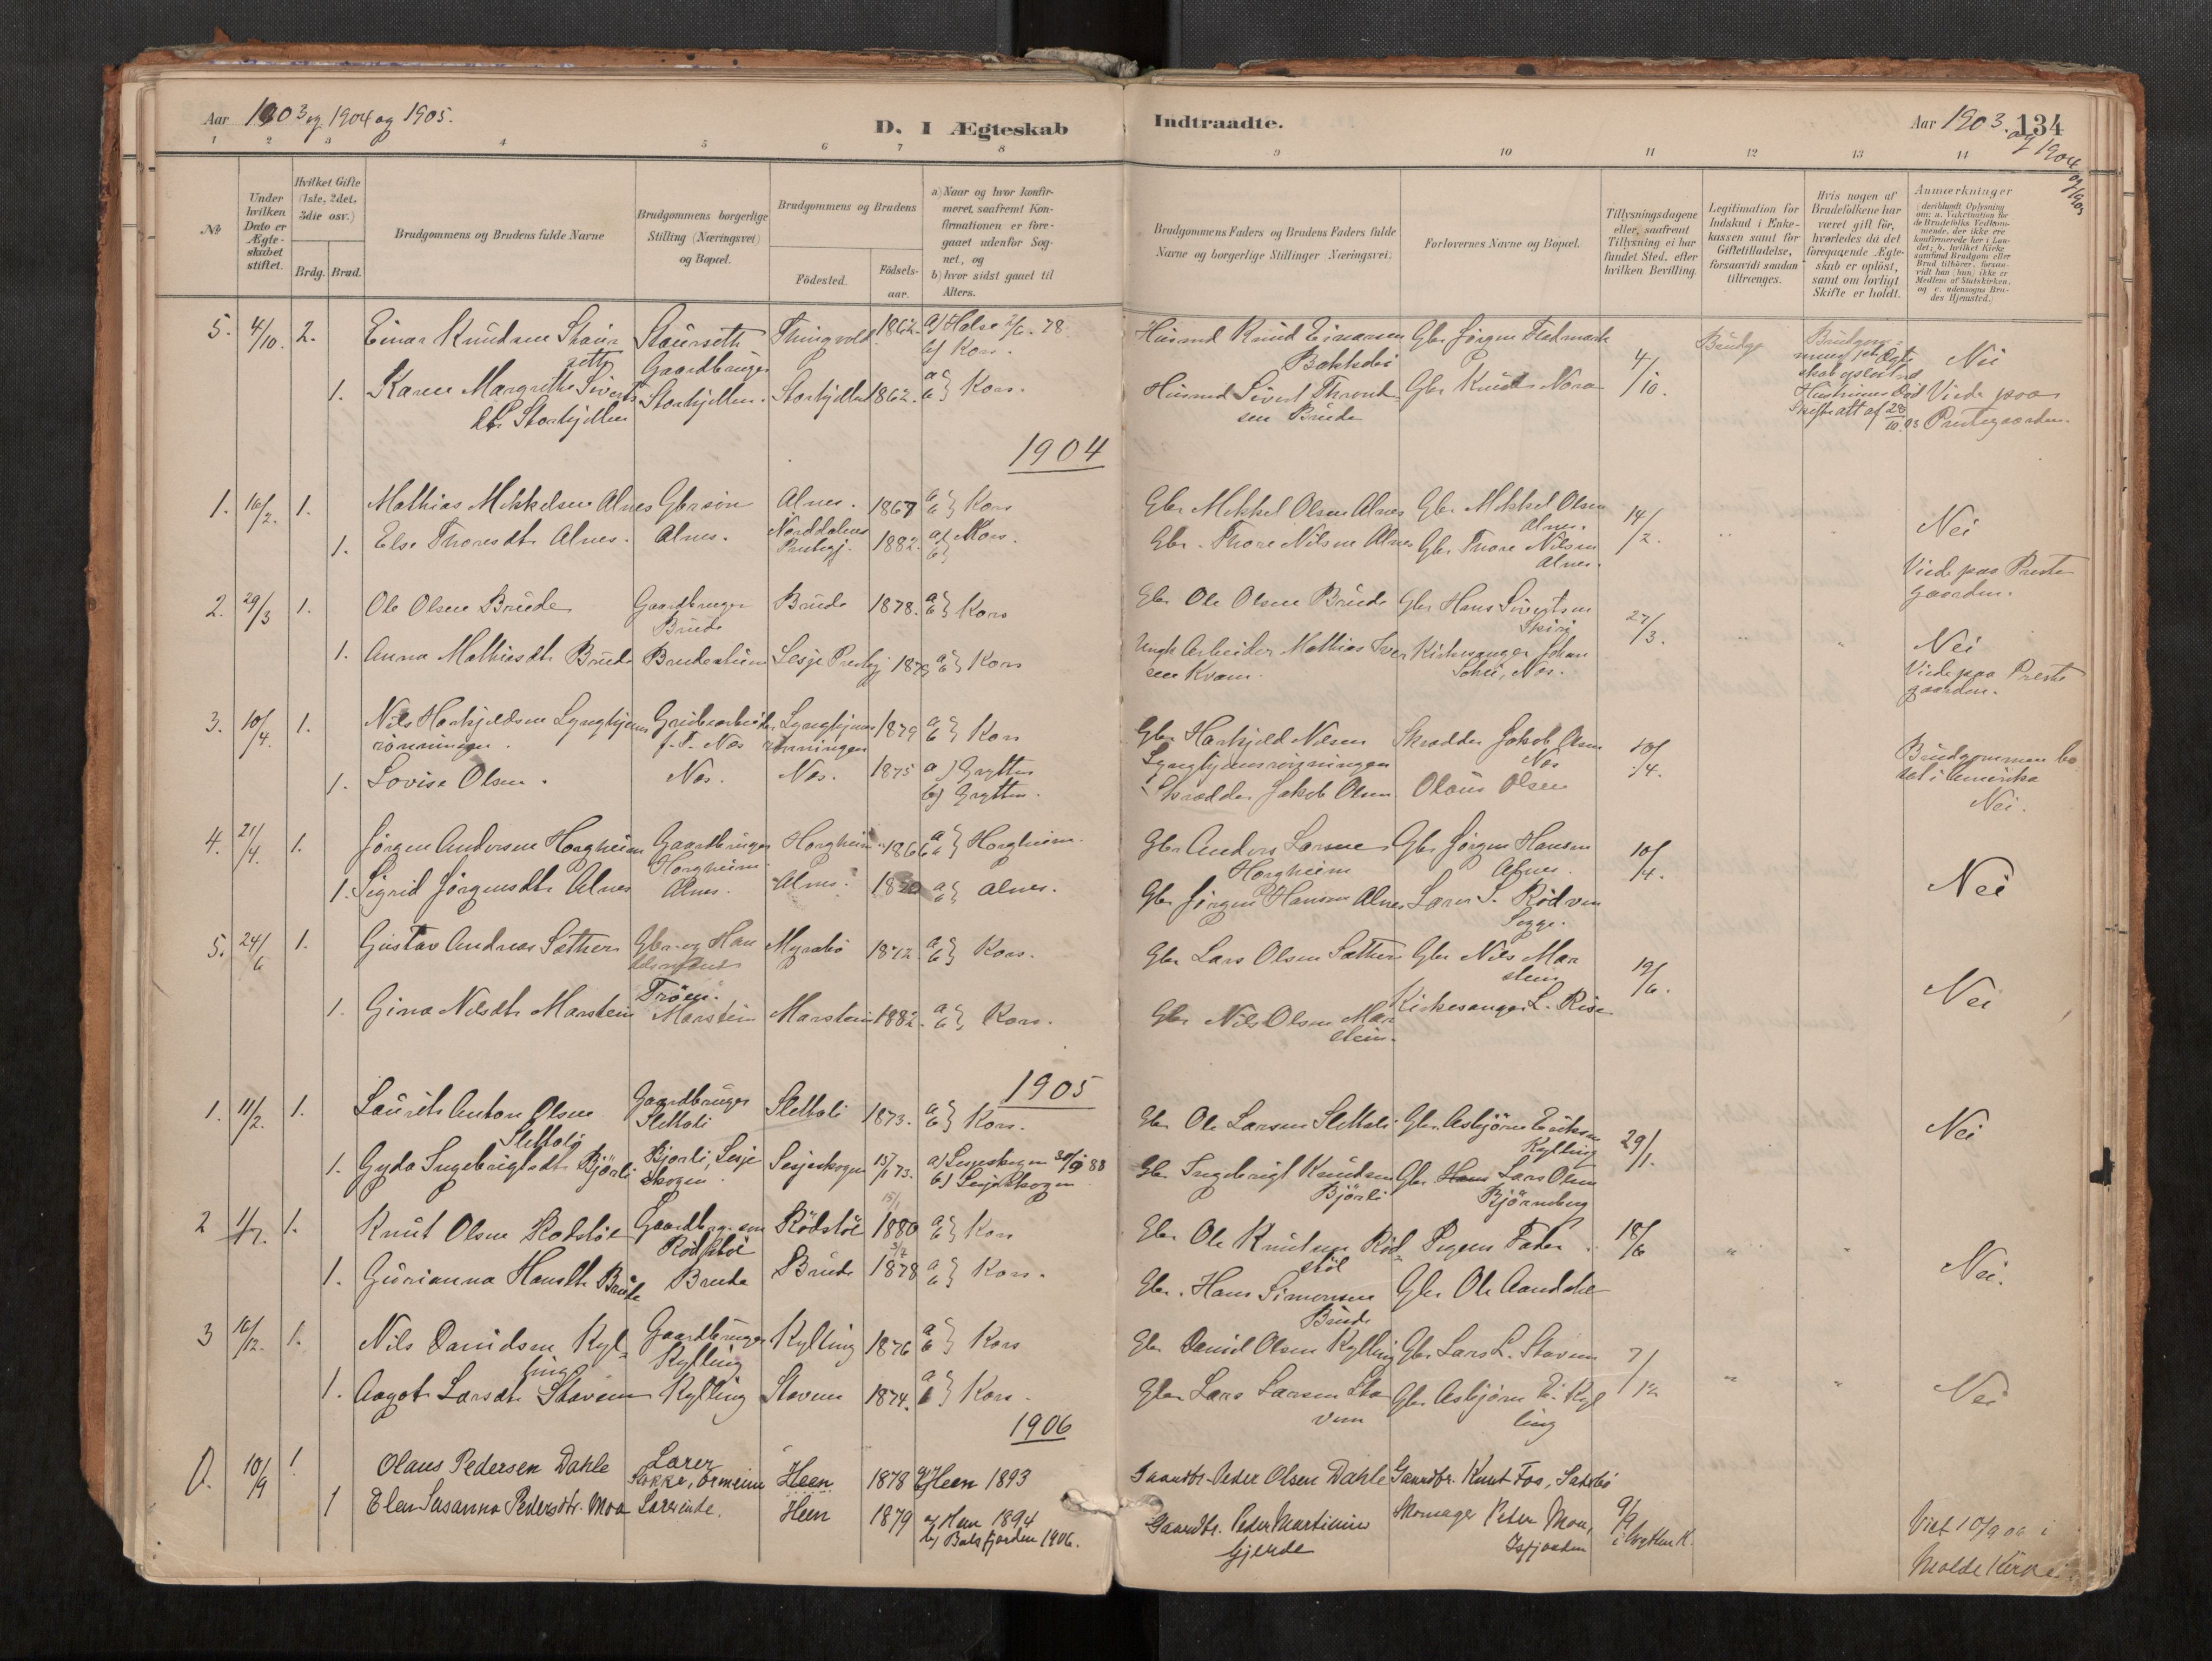 Aar 1903 og 1904 og 1905.
D. I Ægteskab
Indtraadte.
Aar 1903. 134
og 1904
og 1905
1 2 3 4 5 6 7 8 9 10 11 12 13 14
№
Under hvilken Dato er Ægteskabet stiftet.
Hvilket Gifte (1ste, 2det, 3die osv.)
Brdg. Brud.
Brudgommens og Brudens fulde Navne
Brudgommens borgerlige Stilling (Næringsvei) og Bopæl.
Brudgommens og Brudens
Fødested.
Fødselsaar.
a) Naar og hvor konfirmeret, saafremt Konfirmationen er foregaaet udenfor Sognet, og
b) hvor sidst gaaet til Alters.
Brudgommens Faders og Brudens Faders fulde Navne og borgerlige Stillinger (Næringsvei)
Forlovernes Navne og Bopæl.
Tillysningsdagene eller, saafremt Tillysning ei har fundet Sted, efter hvilken Bevilling.
Legitimation for Indskud i Enkekassen samt for Giftetilladelse, forsaavidt saadan tiltrænges.
Hvis nogen af Brudefolkene har været gift før, hvorledes da det foregaaende Ægteskab er opløst, samt om lovligt Skifte er holdt.
Anmærkninger
5. 4/10. 2. Einar Knudsen Staursetts Staurseth Gaardbruger Thingvold 1862. a) Halse 2/6. 78. b) Kors. Husmd Knud Einarsen Bakkebø Gbr Jørgen Flatmark 4/10. Nei
1. Karen Margrethe Sivertsdtr. Storhjellen Storhjellen. Storhjellen 1862. a b} Kors. Husmd Sivert Throndsen Brude Gbr Knud Nora Viede paa Prestegaarden.
1904
1. 16/2. 1. Mathias Mikkelsen Alnes Gbrsøn Alnes. 1867 a b} Kors Gbr Mikkel Olsen Alnes Gbr Mikkel Olsen Alnes. 14/2. Nei
1. Else Thoresdtr Alnes. Alnes. Norddalens Prestegj. 1882. a) Kors. b} Gbr. Thore Nilsen Alnes Gbr Thore Nilsen Alnes. Viede paa Prestegaarden.
2. 29/3 1. Ole Olsen Brude Gaardbruger Brude Brude 1878. a b} Kors Gbr Ole Olsen Brude Gbr Hans Sivertsen Skiri 27/3. Nei
1. Anna Mathiasdtr Brude Brudestuen Lesje Prestegj a b} Kors Ungk Arbeider Mathias Iversen Kvam. Kirkesanger Johan Viede paa Prestegaarden.
3. 10/4. 1. Nils Harkjeldsen Lynghjemsrønningen. Grubearbeider f. T. Nes Lynghjemsrønningen 1879 a b} Kors Gbr Harkjeld Nilsen Lynghjemsrønningen Skrædder Jakob Olsen Nes 10/4. Brudgommen bosat i Amerika
1. Lovise Olsen. Nes. Nes. 1875 a) Grytten b) Grytten. Skrædder Jakob Olsen Olaus Olsen Nei.
4. 21/4. 1. Jørgen Andersen Horgheim Gaardbruger Horgheim Horgheim 1866 a b} Horgheim. Gbr Anders Larsen Horgheim Gbr Jørgen Hansen Alnes. 10/4. Nei
1. Sigrid Jørgensdtr Alnes Alnes. Alnes. a b} Alnes. Gbr Jørgen Hansen Alnes Lærer S. Rødven Sogge.
5. 24/6 1. Gustav Andreas Sæthere Gbr og Handelsmand Trøen. Myrabø 1872 a b} Kors. Gbr Lars Olsen Sæthere Gbr Nils Marstein 19/6. Nei
1. Gina Nilsdtr Marstein Marstein Marstein 1882. a b} Kors. Gbr Nils Olsen Marstein. Kirkesanger L. Rise
1905
1. 11/2. 1. Laurits Anton Olsen Slettali Gaardbruger Slettali Slettali 1873. a b} Kors. Gbr Ole Larsen Slettali Gbr. Asbjørn Eriksen Kylling 29/1. Nei
1. Gyda Ingebrigtsdtr Bjørli Bjorli, Lesjeskogen. Lesjeskogen 15/1 73. a) Lesjeskogen 30/9 88 b) Lesjeskogen Gbr Ingebrigt Knudsen Bjørli Gbr. Hans Lars Olsen Bjørneberg
2 1. Knut Olsen Rødstøl Gaardbrg. søn Rødstøl Rødstøl 1880 a b} Kors Gbr Ole Knutsen Rødstøl Pigens Fader. 18/6 Nei.
1. Gurianna Hansdtr Brude Brude Brude 1878 a b} Kors. Gbr. Hans Simonsen Brude Gbr Ole Aandahl
3 16/12. 1. Nils Davidsen Kylling Gaardbruger Kylling Kylling 1876 a b} Kors Gbr David Olsen Kylling Gbr Lars L. Stavem 7/12 Nei
1. Aagot Larsdtr Stavem Kylling Stavem 1874. a b} Kors. Gbr Lars Larsen Stavem Gbr Asbjørn Er. Kylling
1906
0. 10/9 1 Olaus Pedersen Dahle Lærer Stokke, Ormeim Heen 1878 Heen 1893 Gaardbr. Peder Olsen Dahle Gaardbr. Knut Fos,
1 Elen Susanna Pedersdtr. Moa Lærerinde. Heen 1879 a) Heen 1894 b) Balsfjorden 1906. Gaardbr. Peder Martinius Gjerde Skomager Peter Moa, Isfjorden 9/9 i Grytten K. Viet 10/9 06 i Molde Kirke